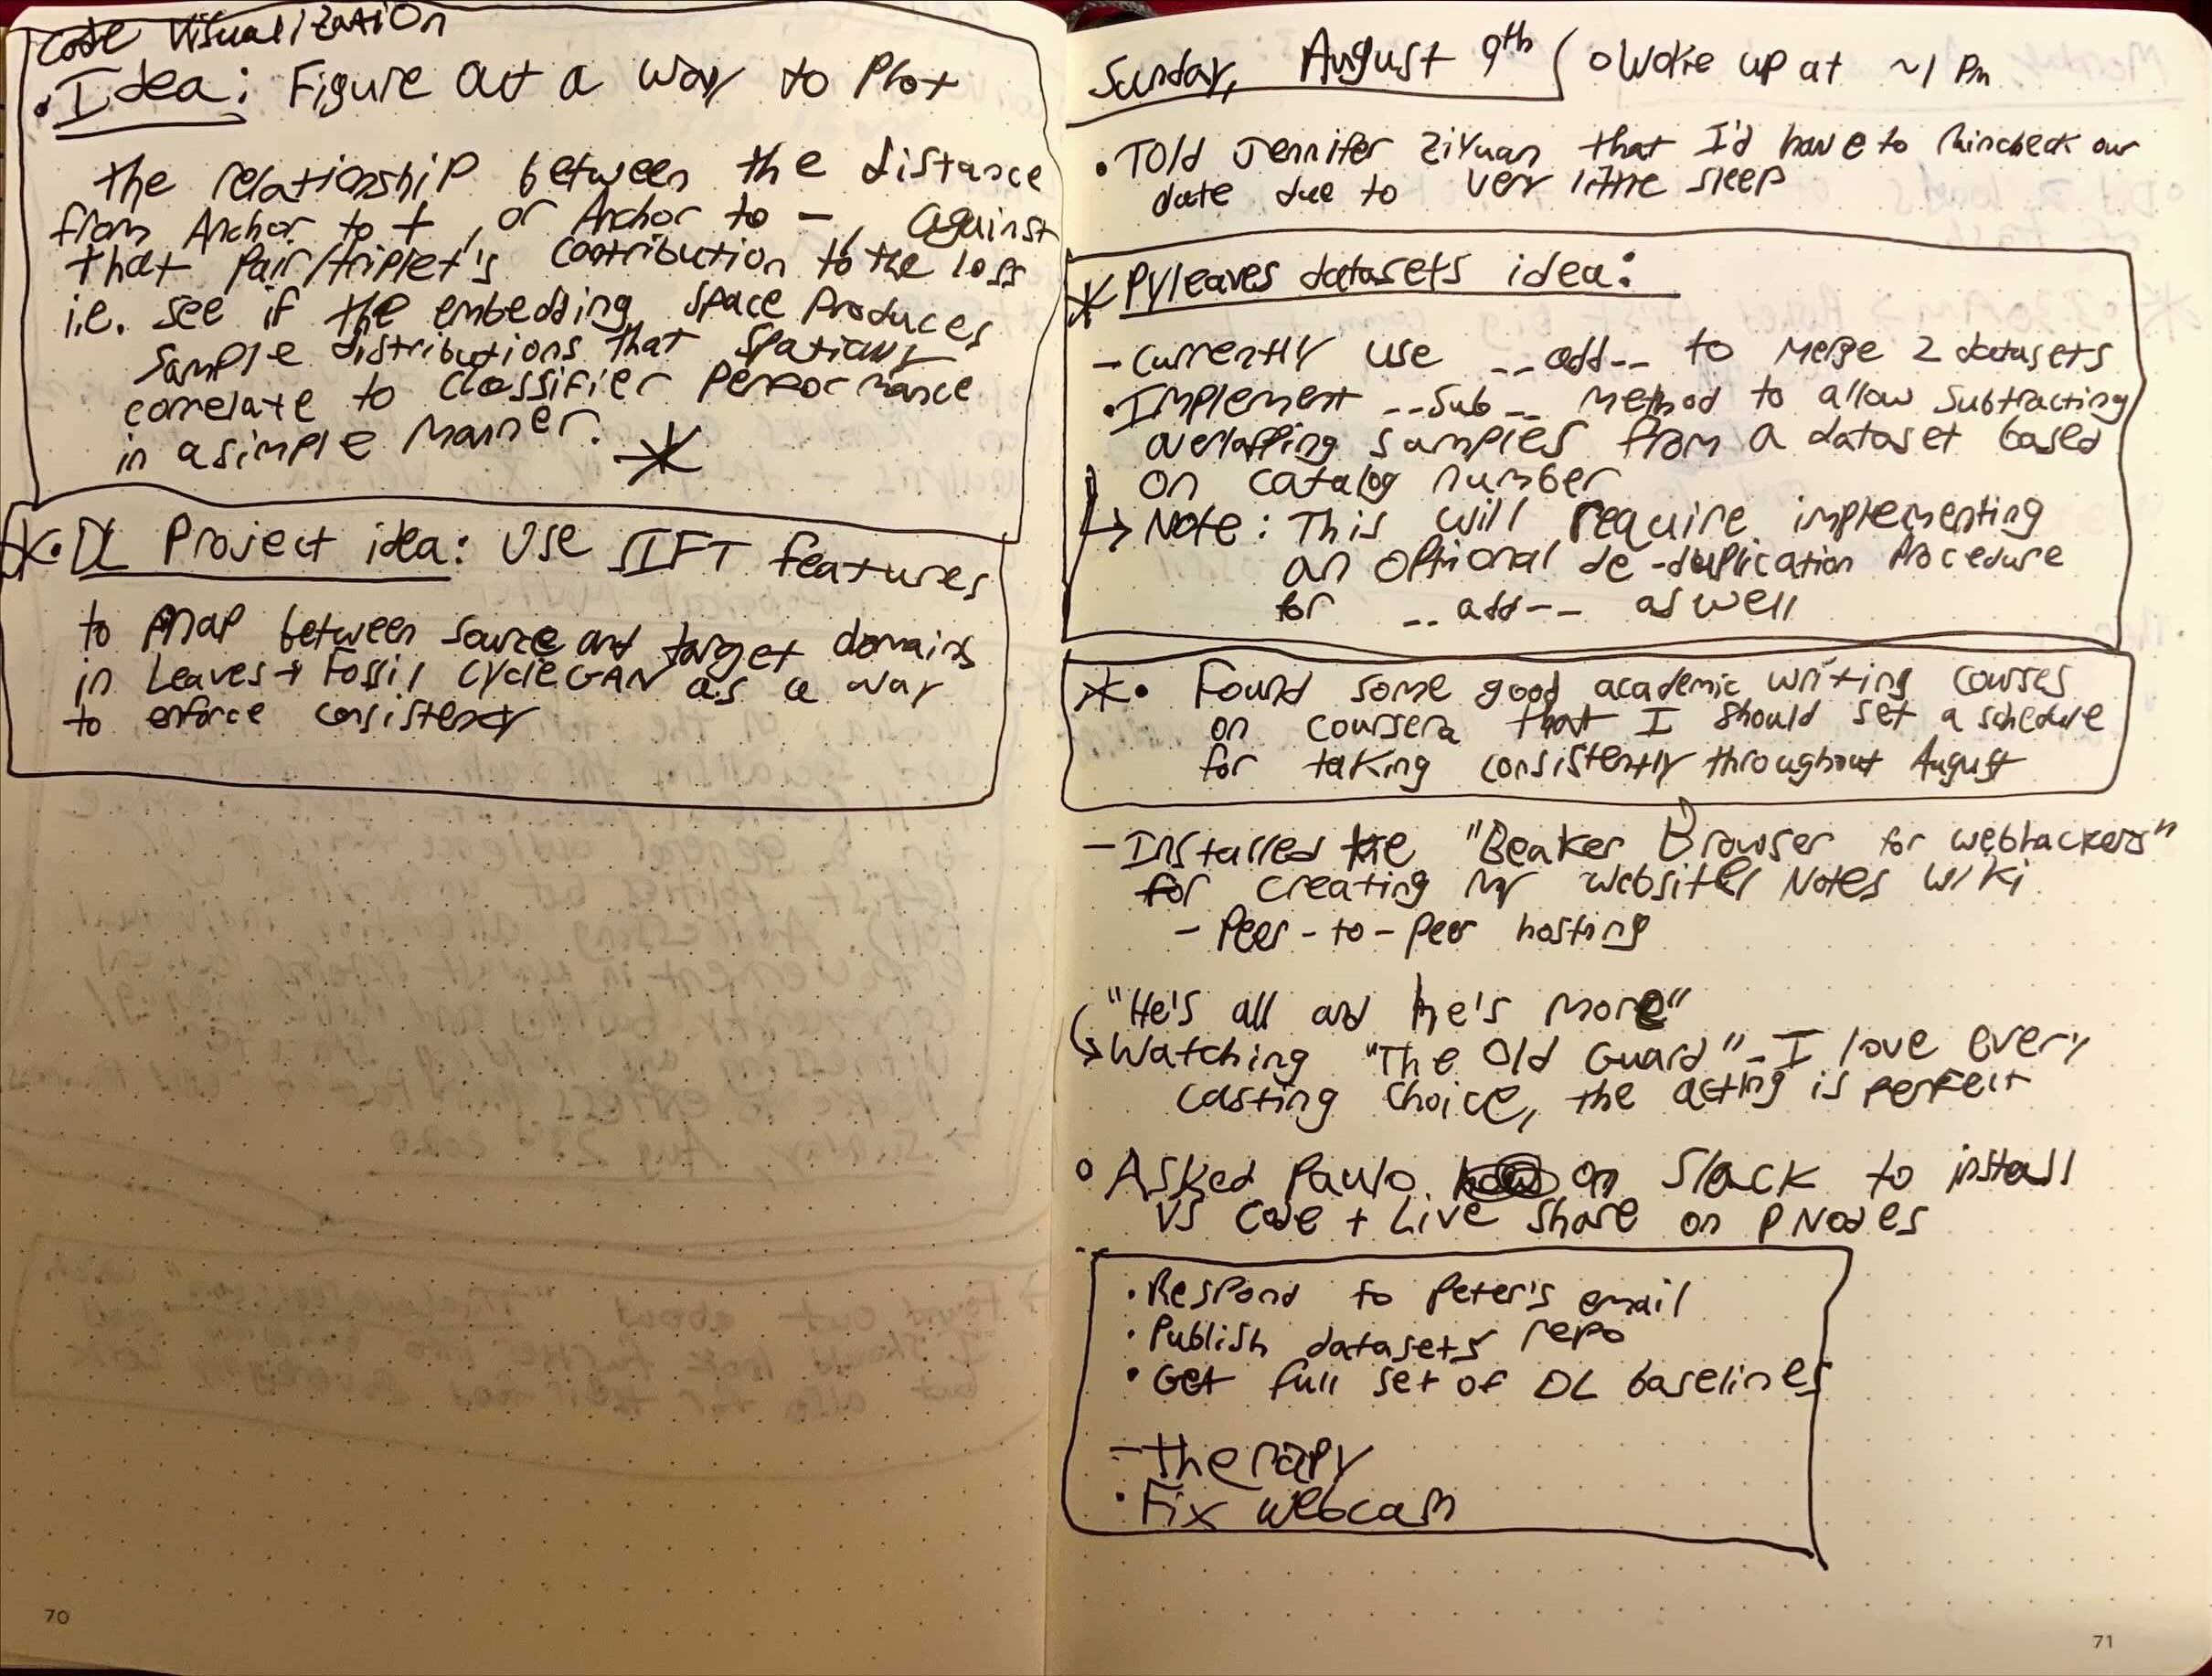 Code Visualization
• Idea: Figure out a way to Plot
the relationship between the distance
from Anchor to +, or Anchor to -, against
that Pair/triplet's contribution to the loss
i.e. see if the embedding space Produces
sample distributions that spatially
correlate to classifier performance
in a simple manner. *
*• DL Project idea: Use SIFT features
to map between source and target domains
in Leaves → Fossil CycleGAN as a way
to enforce consistency
70
Sunday, August 9th / o Woke up at ~1 Pm
• Told Jennifer Ziyuan that I'd have to Raincheck our
date due to very little sleep
* Pyleaves datasets idea:
- Currently use __add__ to Merge 2 datasets
• Implement __sub__ method to allow subtracting
overlapping samples from a dataset based
on catalog number
↳ Note: This will require implementing
an optional de-duplication Procedure
for __add__ as well
*• Found some good academic writing courses
on coursera that I should set a schedule
for taking consistently throughout August
- Installed the "Beaker Browser for webhackers"
for creating my website/ Notes Wiki
- Peer-to-Peer hosting
"He's all and he's more"
↳ Watching "The Old Guard" - I love every
casting choice, the acting is perfect
o Asked Paulo on Slack to install
VS Code + Live Share on PNodes
• Respond to Peter's email
• Publish datasets repo
• Get full set of DL baselines
- therapy
• Fix webcam
71